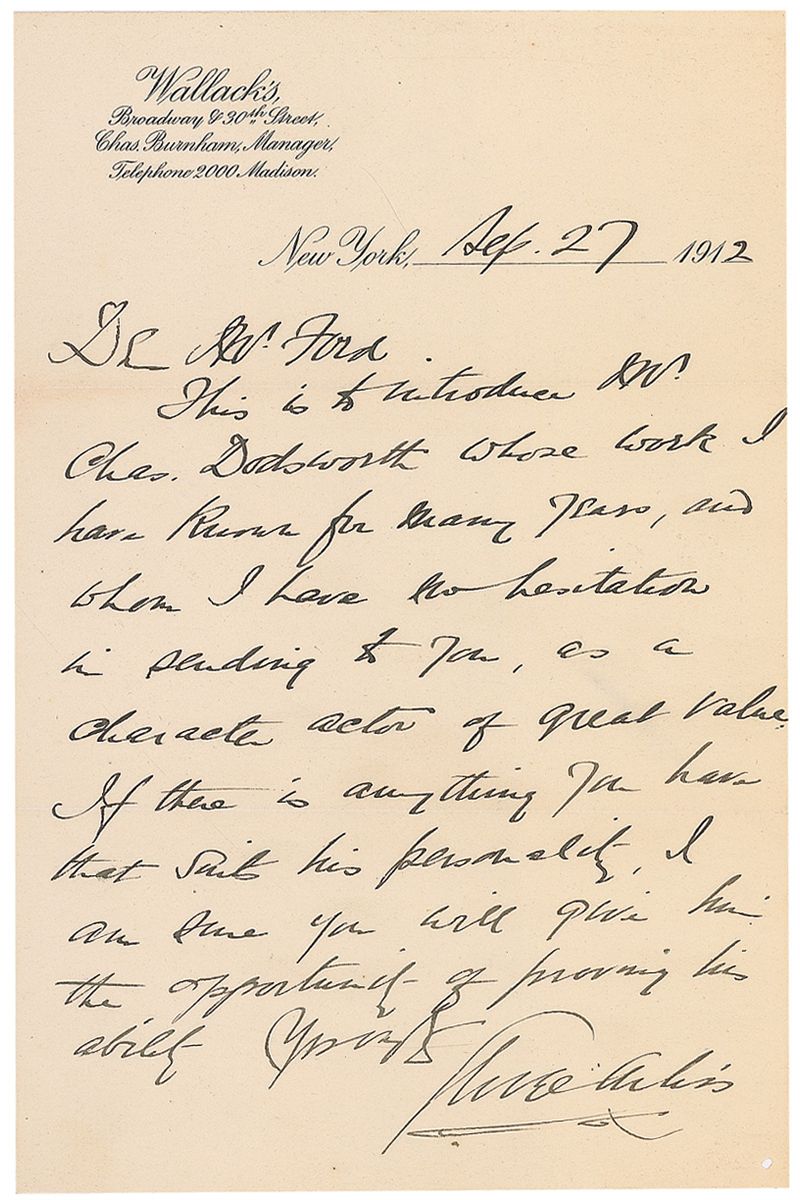 Wallack's,
Broadway & 30th Street,
Chas. Burnham, Manager,
Telephone 2000 Madison.
New York, Sep. 27 1912
Dear Mr. Ford.
This is to introduce Mr.
Chas. Dodsworth whose work I
have known for many years, and
whom I have no hesitation
in sending to you, as a
character actor of great value.
If there is anything you have
that suits his personality, I
am sure you will give him
the opportunity of proving his
ability Yours
George Arliss